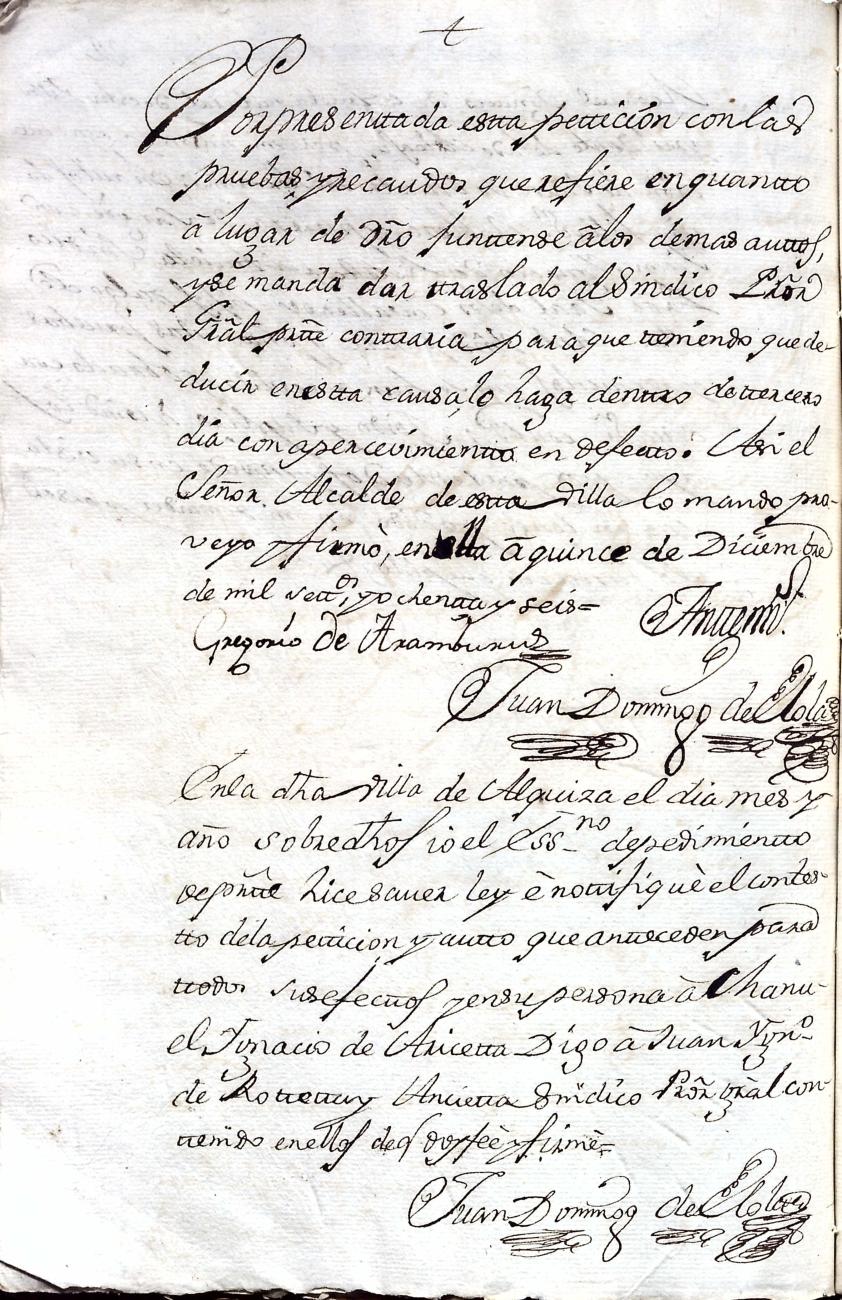 Por presenttada estta pettición con las
pruebas y recaudos que refiere en quantto
â lugar de dr̃o junttense âlos demas auttos,
y se manda dar ttraslado al Sindico Pr̃or
Gr̃al partte conttraria para que tteniendo que de-
ducir en estta causa, lo haga denttro de ttercero
dia con apercevimientto en defectto. Asi el
Señor Alcalde de estta villa lo mando pro-
veyo y firmò, en ella â quince de Diciembre
de mil settos, y ochentta y seis=
Gregorio de Aramburu
Anttemi.
Juan Domingo de Elola
En la dha villa de Alquiza el dia mes y
año sobredhos io el Essno de pedimientto
de partte hice saver ley è nottifiquè el contes-
tto dela petticion y autto que antteceden para
ttodos sus efecttos y en su persona â Manu-
el Ygnacio de Aricetta Digo â Juan Ygno
de Rottettay Ancietta Sindico Pr̃or gr̃al con-
ttenido en ellos de q doy feè y firmè=
Juan Domingo de Elola